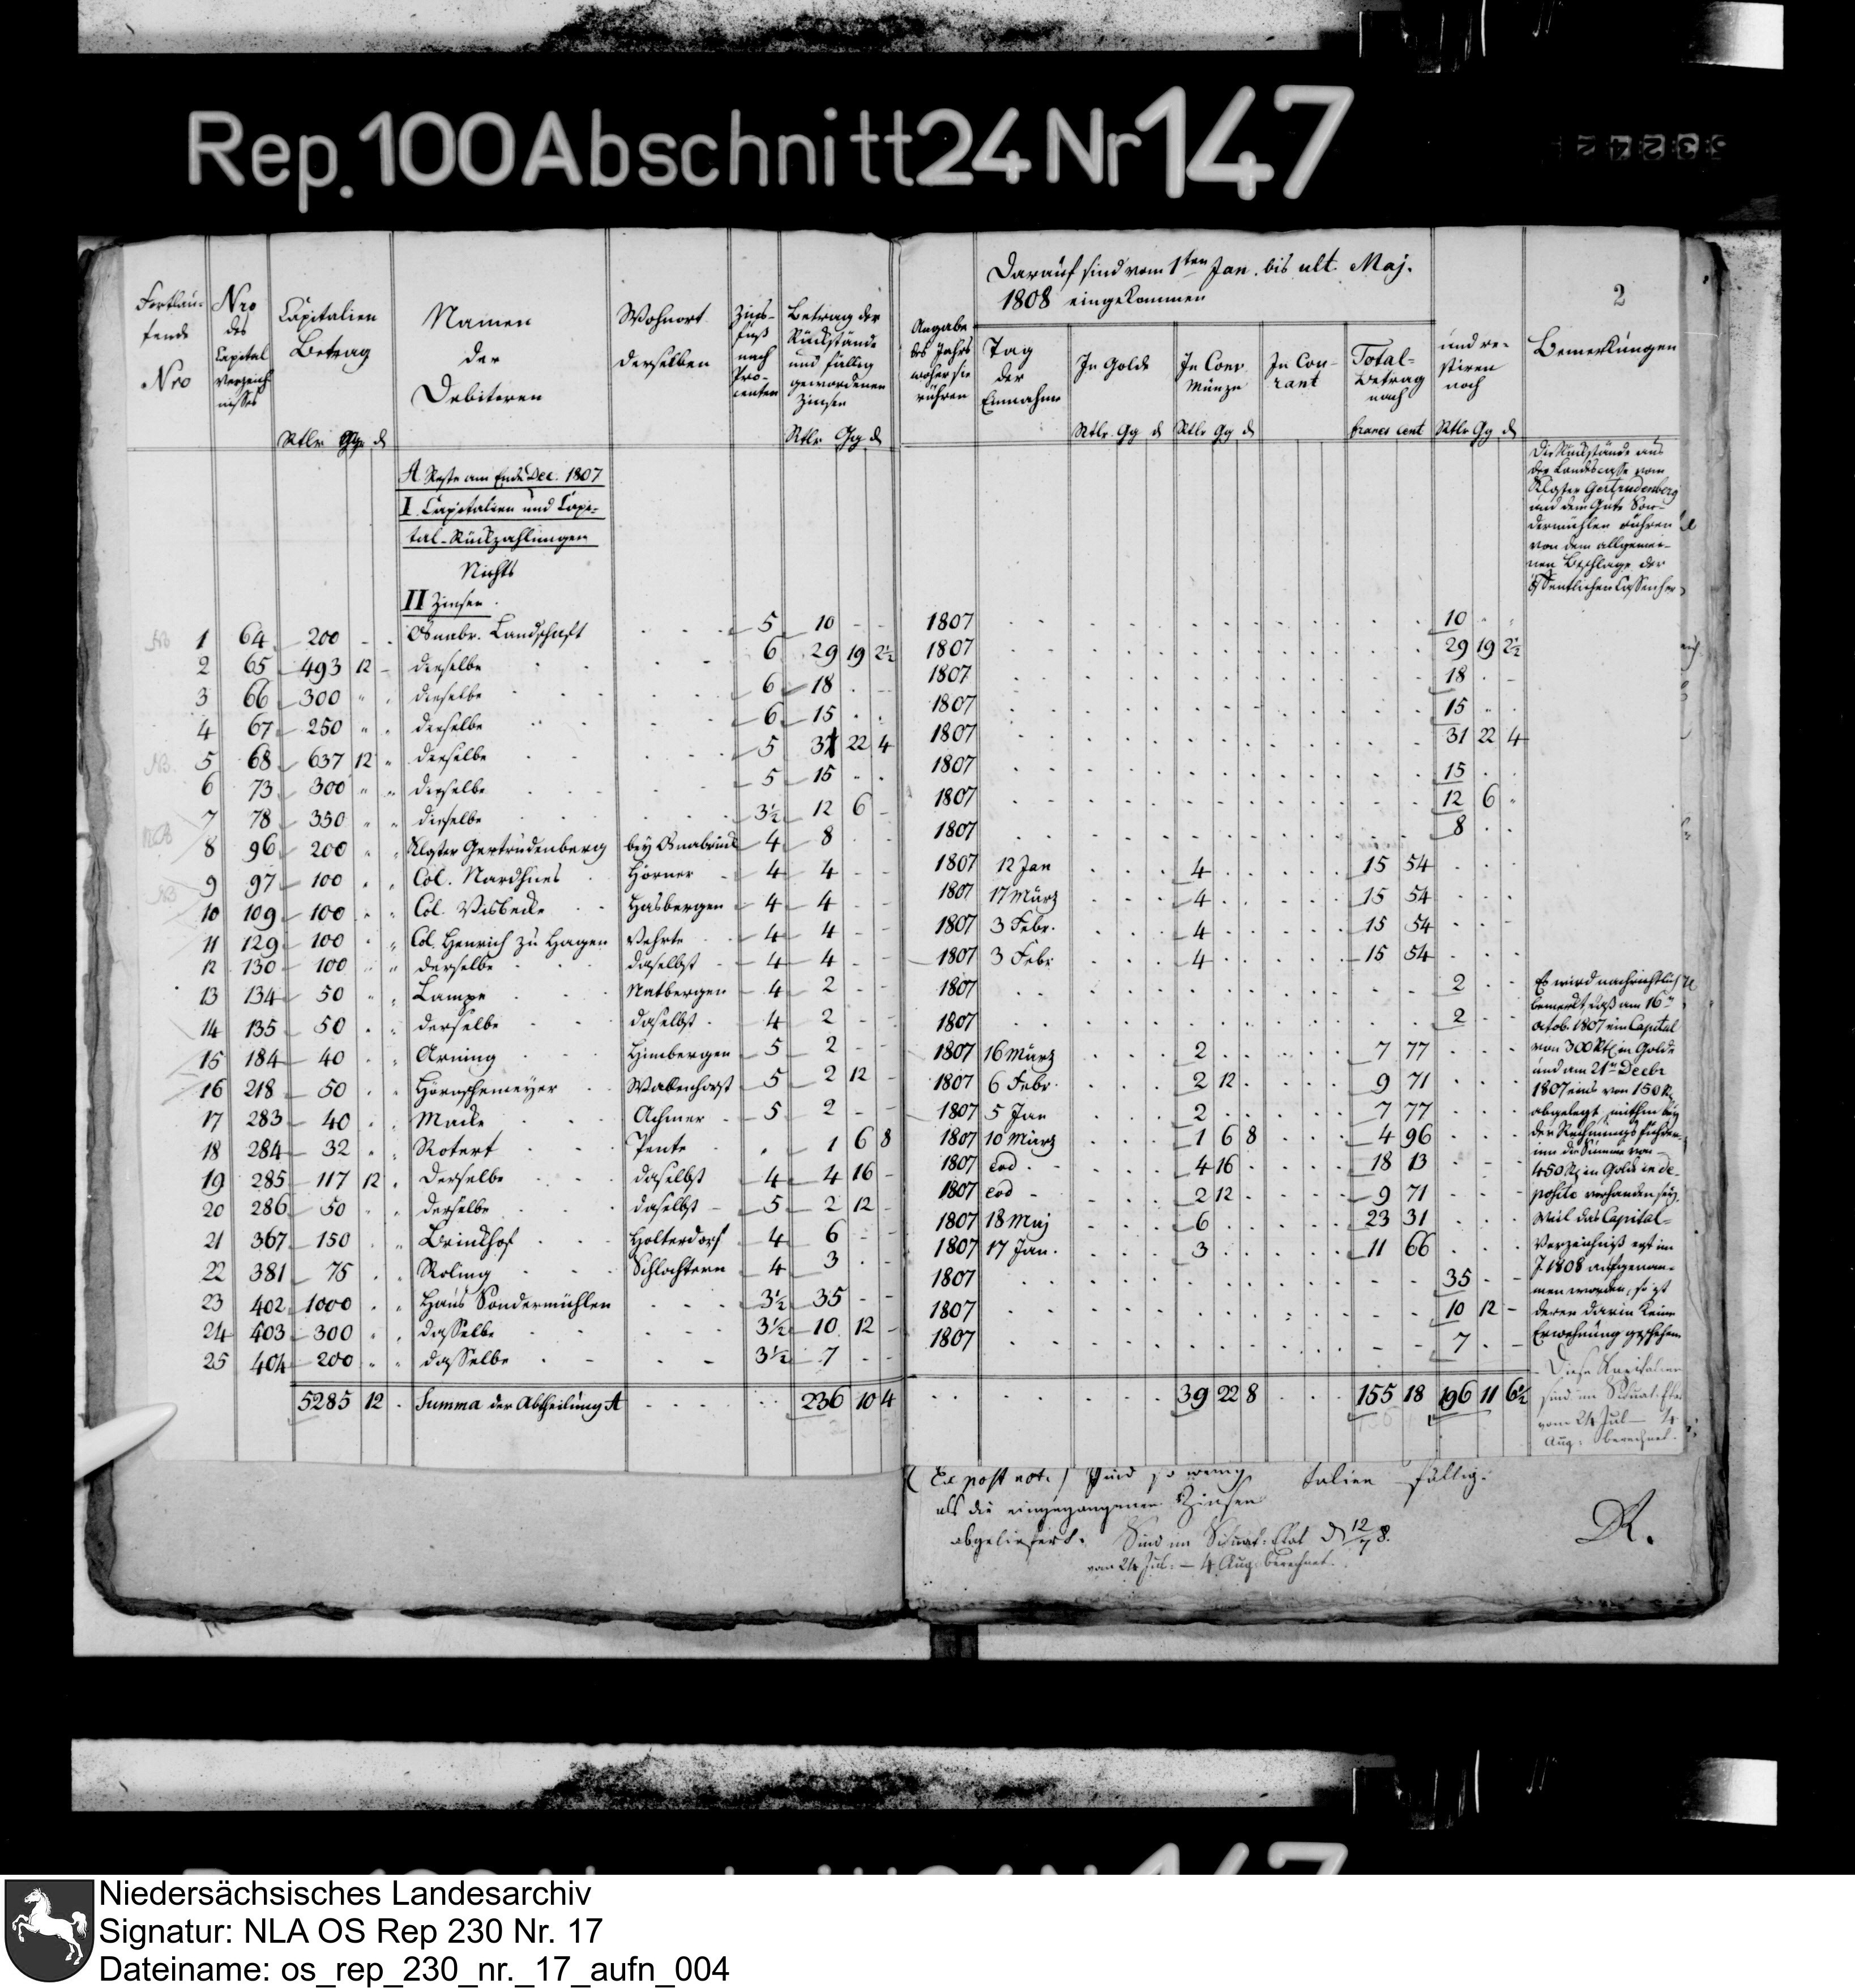 Rep.100 Abschnitt 24 Nr 147
2
Fortlau-
fende
Nro
Nro
des
Capital
Verzeich
nisses
Capitalien
Betrag
Rtlr Ggr d
Namen
der
Debitoren
Wohnort
derselben
Zins-
fuß
nach
Pro-
centen
Betrag der
Rückstände
und fällig
gewordenen
Zinsen
Rtlr Gg d
Angabe
des Jahrs
woher sie
rühren
Darauf sind vom 1ten Jan. bis ult. Maj.
1808 eingekommen
Tag
der
Einnahme
In Golde
Rtlr Gg d
In Conv.
Münze
Rtlr Gg d
In Cou-
rant
Total-
Betrag
nach
francs cent
und re-
stiren
noch
Rtlr Gg d
Bemerkungen
A Reste am Ende Dec. 1807
I. Capitalien und Capi-
tal-Rückzahlungen
Nichts
II Zinsen.
1 64 200 - - Osnabr. Landschaft 5 10 - - 1807 10
2 65 493 12 - dieselbe 6 29 19 2½ 1807 29 19 2½
3 66 300 dieselbe 6 18 1807 18
4 67 250 dieselbe 6 15 1807 15
5 68 637 12 dieselbe 5 31 22 4 1807 31 22 4
6 73 300 dieselbe 5 15 1807 15
7 78 350 dieselbe 3½ 12 6 1807 12 6
8 96 200 Kloster Gertrudenberg bey Osnabrück 4 8 1807 8
9 97 100 Col. Nardhues Hörner 4 4 1807 12 Jan 4 15 54
10 109 100 Col. Visbecke Hasbergen 4 4 1807 17 März 4 15 54
11 129 100 Col. Henrich zu Hagen Vehrte 4 4 1807 3 Febr. 4 15 54
12 130 100 derselbe daselbst 4 4 1807 3 Febr 4 15 54
13 134 50 Lampe Natbergen 4 2 1807 2
14 135 50 derselbe daselbst 4 2 1807 2
15 184 40 Arning Himbergen 5 2 1807 16 März 2 7 77
16 218 50 Hörnschemeyer Wallenhorst 5 2 12 1807 6 Febr. 2 12 9 71
17 283 40 Macke Achmer 5 2 1807 5 Jan 2 7 77
18 284 32 Rotert Pente 1 6 8 1807 10 März 1 6 8 4 96
19 285 117 12 derselbe daselbst 4 4 16 1807 eod. 4 16 18 13
20 286 50 derselbe daselbst 5 2 12 1807 eod 2 12 9 71
21 367 150 Brinkhof Holterdorf 4 6 1807 18 Maj 6 23 31
22 381 75 Roling Schlochtern 4 3 1807 17 Jan. 3 11 66
23 402 1000 Haus Sondermühlen 3½ 35 1807 35
24 403 300 dasselbe 3½ 10 12 1807 10 12
25 404 200 dasselbe 3½ 7 1807 7
5285 12 Summa der Abtheilung A 236 10 4 39 22 8 155 18 196 11 6½
Die Rückstände aus
der Landescasse vom
Kloster Gertrudenberg
und dem Gute Son-
dermühlen rühren
von dem allgemei-
nen Beschlage der
öffentlichen Cassen her
Es wird nachrichtlich
bemerkt, daß am 16n
Octob. 1807 ein Capital
von 300 Rtl in Golde
und am 21n Decbr
1807 eins von 150 R
abgelegt, mithin bey
der Rechnungsführer-
um die Summe von
450 R in Golde in de-
posito vorhanden sey.
Weil das Capital-
Verzeichniß erst im
J. 1808 aufgenom-
men worden, so ist
deren darin keine
Erwehnung geschehen
Diese Capitalien
sind im Situat. Etat
vom 24 Jul - 4
Aug. berechnet.
(Ex post not.) Sind so wenig talien fällig.
als die eingegangenen Zinsen
abgeliefert. Sind im Situat. Etat
vom 24 Jul. - 4 Aug. berechnet.
R.
Niedersächsisches Landesarchiv
Signatur: NLA OS Rep 230 Nr. 17
Dateiname: os_rep_230_nr._17_aufn_004